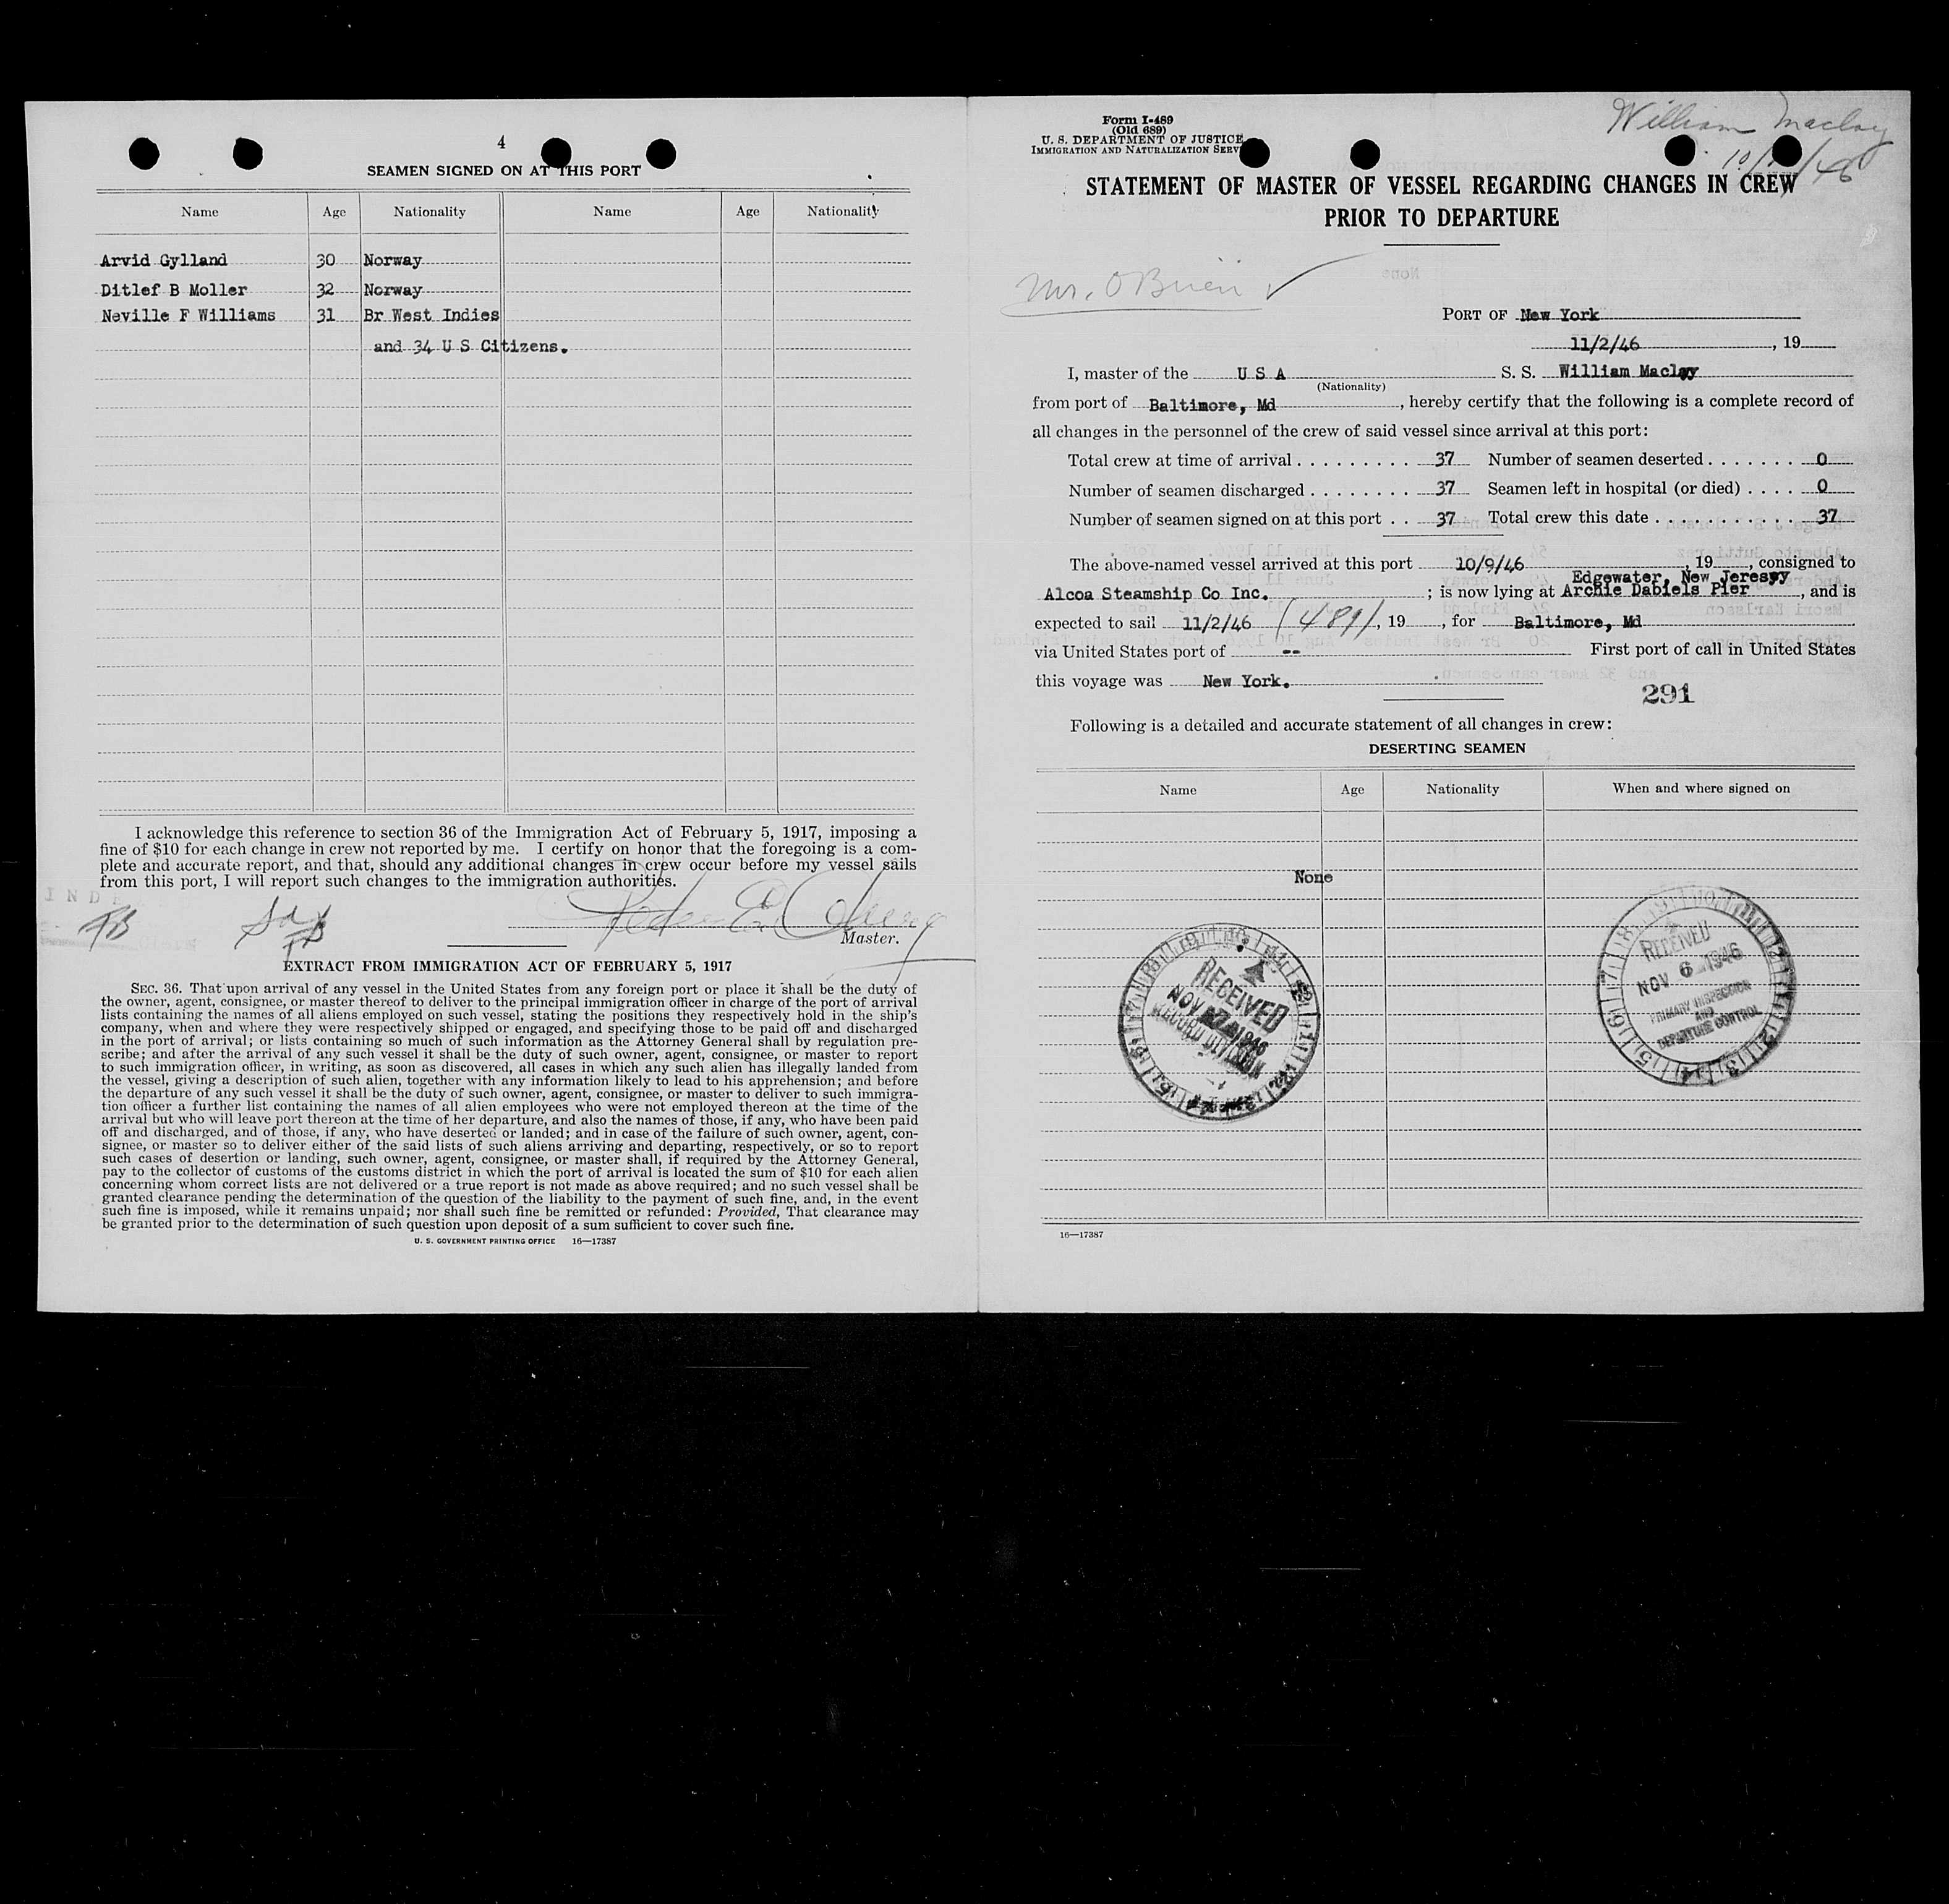 4
SEAMEN SIGNED ON AT THIS PORT
Name Age Nationality Name Age Nationality
Arvid Gylland 30 Norway
Ditlef B Moller 32 Norway
Neville F Williams 31 Br West Indies
and 34 U S Citizens.
I acknowledge this reference to section 36 of the Immigration Act of February 5, 1917, imposing a
fine of $10 for each change in crew not reported by me. I certify on honor that the foregoing is a com-
plete and accurate report, and that, should any additional changes in crew occur before my vessel sails
from this port, I will report such changes to the immigration authorities.
Master.
EXTRACT FROM IMMIGRATION ACT OF FEBRUARY 5, 1917
SEC. 36. That upon arrival of any vessel in the United States from any foreign port or place it shall be the duty of
the owner, agent, consignee, or master thereof to deliver to the principal immigration officer in charge of the port of arrival
lists containing the names of all aliens employed on such vessel, stating the positions they respectively hold in the ship's
company, when and where they were respectively shipped or engaged, and specifying those to be paid off and discharged
in the port of arrival; or lists containing so much of such information as the Attorney General shall by regulation pre-
scribe; and after the arrival of any such vessel it shall be the duty of such owner, agent, consignee, or master to report
to such immigration officer, in writing, as soon as discovered, all cases in which any such alien has illegally landed from
the vessel, giving a description of such alien, together with any information likely to lead to his apprehension; and before
the departure of any such vessel it shall be the duty of such owner, agent, consignee, or master to deliver to such immigra-
tion officer a further list containing the names of all alien employees who were not employed thereon at the time of the
arrival but who will leave port thereon at the time of her departure, and also the names of those, if any, who have been paid
off and discharged, and of those, if any, who have deserted or landed; and in case of the failure of such owner, agent, con-
signee, or master so to deliver either of the said lists of such aliens arriving and departing, respectively, or so to report
such cases of desertion or landing, such owner, agent, consignee, or master shall, if required by the Attorney General,
pay to the collector of customs of the customs district in which the port of arrival is located the sum of $10 for each alien
concerning whom correct lists are not delivered or a true report is not made as above required; and no such vessel shall be
granted clearance pending the determination of the question of the liability to the payment of such fine, and, in the event
such fine is imposed, while it remains unpaid; nor shall such fine be remitted or refunded: Provided, That clearance may
be granted prior to the determination of such question upon deposit of a sum sufficient to cover such fine.
U. S. GOVERNMENT PRINTING OFFICE 16—17387
Form I-489
(Old 689)
U. S. DEPARTMENT OF JUSTICE
IMMIGRATION AND NATURALIZATION SERV
William Maclay
STATEMENT OF MASTER OF VESSEL REGARDING CHANGES IN CREW
PRIOR TO DEPARTURE
Mr. O'Brien ✓
PORT OF New York
11/2/46, 19
I, master of the U S A S. S. William Maclay
(Nationality)
from port of Baltimore, Md, hereby certify that the following is a complete record of
all changes in the personnel of the crew of said vessel since arrival at this port:
Total crew at time of arrival . . . . . . . . . . 37 Number of seamen deserted . . . . . . . 0
Number of seamen discharged . . . . . . . . 37 Seamen left in hospital (or died) . . . . 0
Number of seamen signed on at this port . . 37 Total crew this date . . . . . . . . . . . . 37
The above-named vessel arrived at this port 10/9/46, 19, consigned to
Edgewater, New Jeresey
Alcoa Steamship Co Inc. ; is now lying at Archie Dabiels Pier, and is
expected to sail 11/2/46 (489), 19, for Baltimore, Md
via United States port of -- First port of call in United States
this voyage was New York.
291
Following is a detailed and accurate statement of all changes in crew:
DESERTING SEAMEN
Name Age Nationality When and where signed on
None
RECEIVED
NOV 7 1946
RECORD DIVISION
RECEIVED
NOV 6 1946
PRIMARY INSPECTION
AND
DEPARTURE CONTROL
16—17387